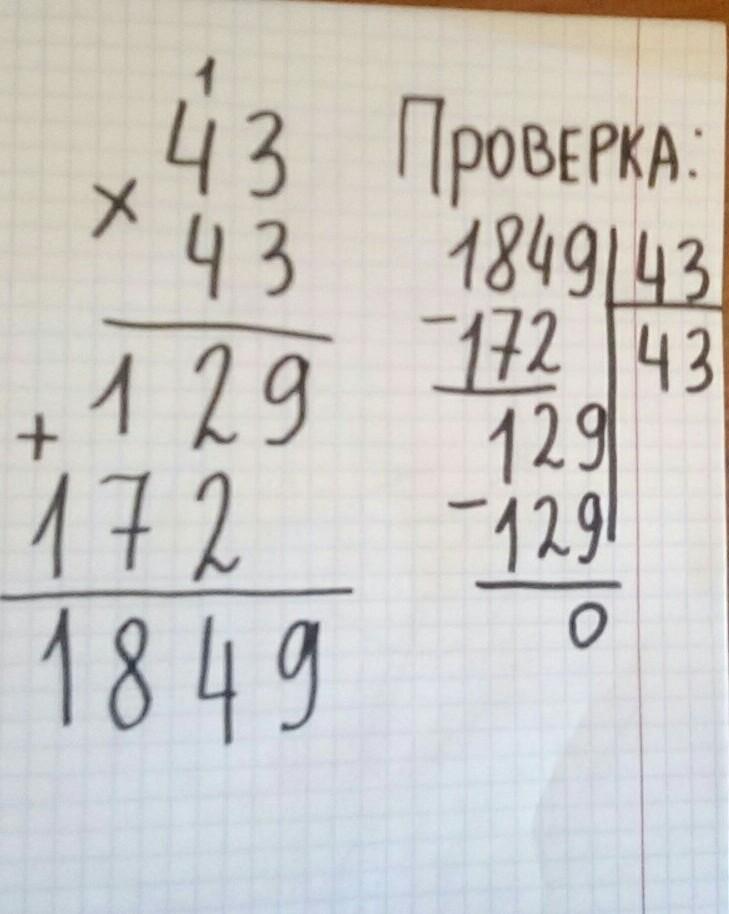 1
43
× 43
129
+ 172
1849
Проверка:
1849 | 43
- 172 | 43
129
- 129
0